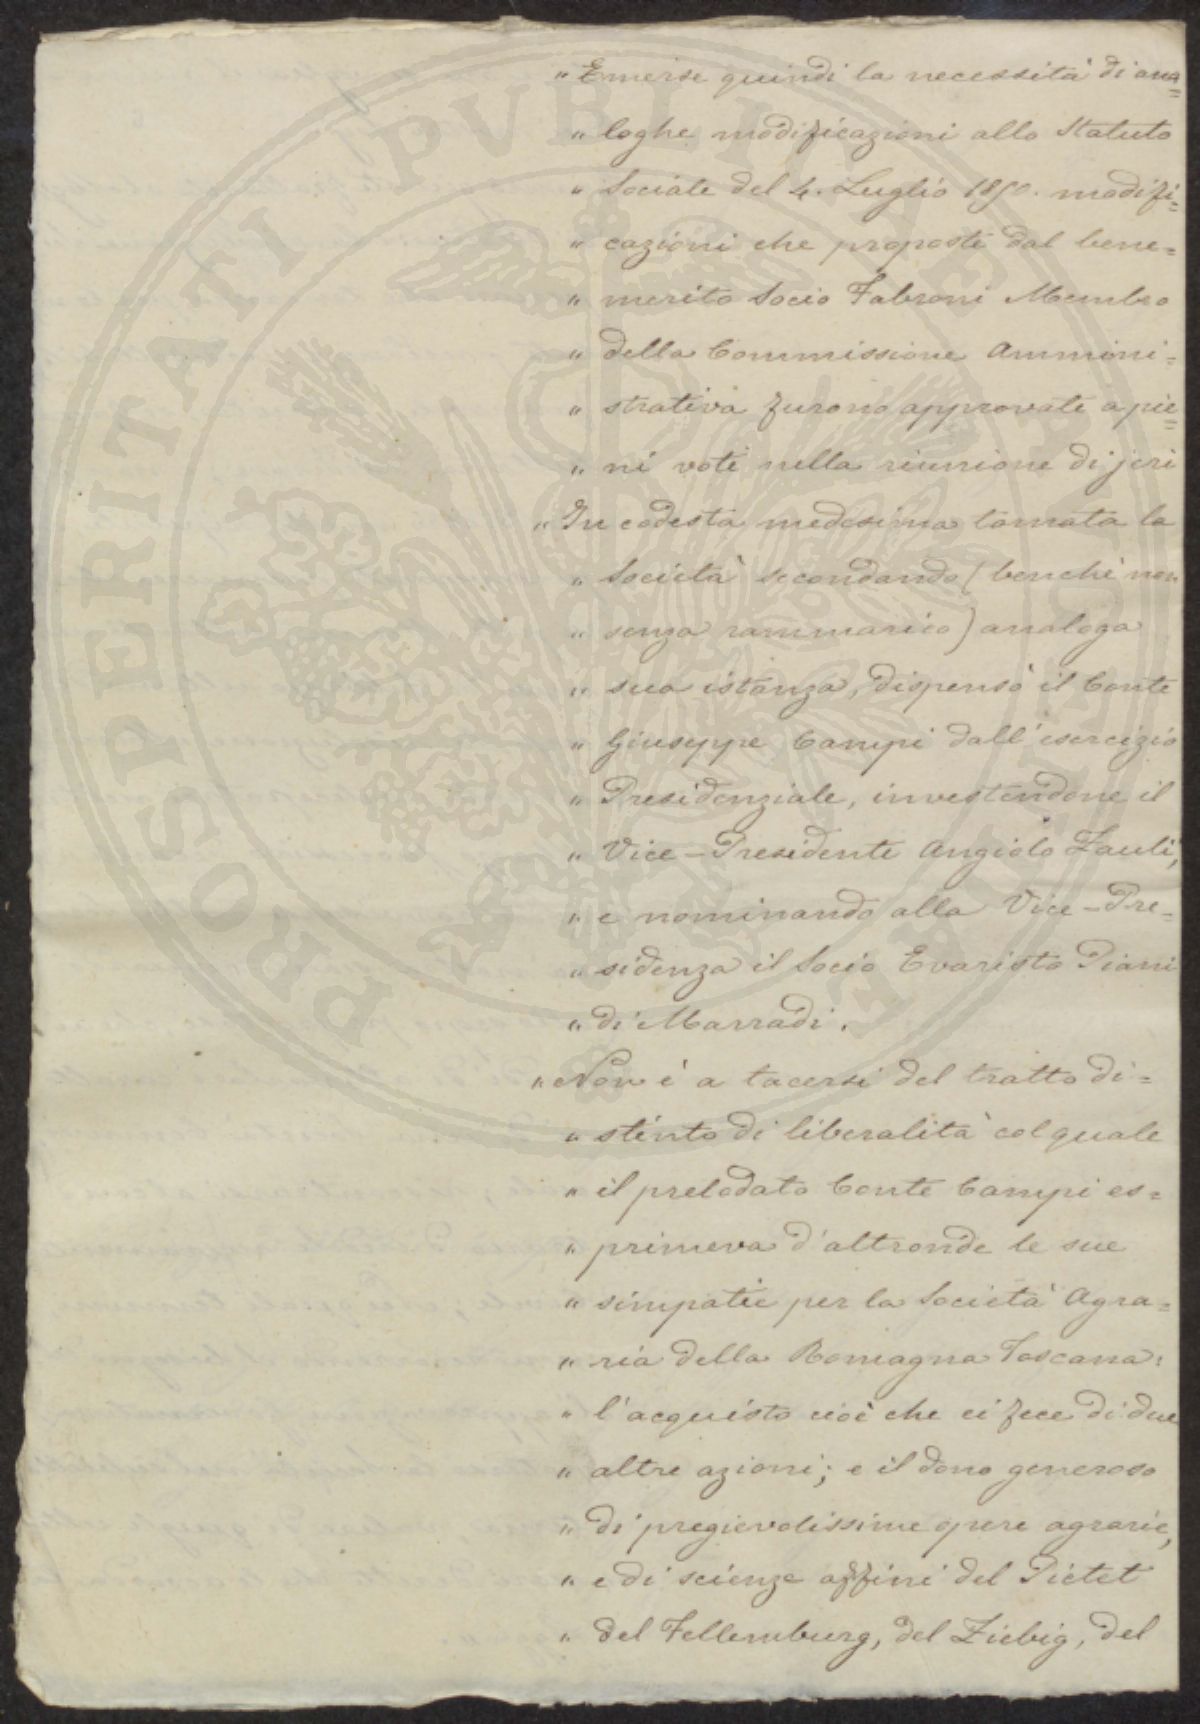 „ Emerse quindi la necessità di ana=
„ loghe modificazioni allo Statuto
„ Sociale del 4. Luglio 1850. modifi=
„ cazioni che proposte dal bene=
„ merito Socio Fabroni Membro
„ della Commissione Ammini=
„ strativa furono approvate a pie=
„ ni voti nella riunione di jeri
„ In codesta medesima tornata la
„ Società secondando (benchè non
„ senza rammarico) analoga
„ sua istanza, dispensò il Conte
„ Giuseppe Campi dall'esercizio
„ Presidenziale, investendone il
„ Vice-Presidente Angiolo Zauli,
„ e nominando alla Vice-Pre=
„ sidenza il Socio Evaristo Piani
„ di Marradi.
„ Non è a tacersi del tratto di=
„ stinto di liberalità col quale
„ il prelodato Conte Campi es=
„ primeva d'altronde le sue
„ simpatie per la Società Agra=
„ ria della Romagna Toscana:
„ l'acquisto cioè che ei fece di due
„ altre azioni; e il dono generoso
„ di pregievolissime opere agrarie,
„ e di scienze affini del Pictet
„ del Fellemburg, del Liebig, del
PROSPERITATI PVBLICAE AVGENDAE